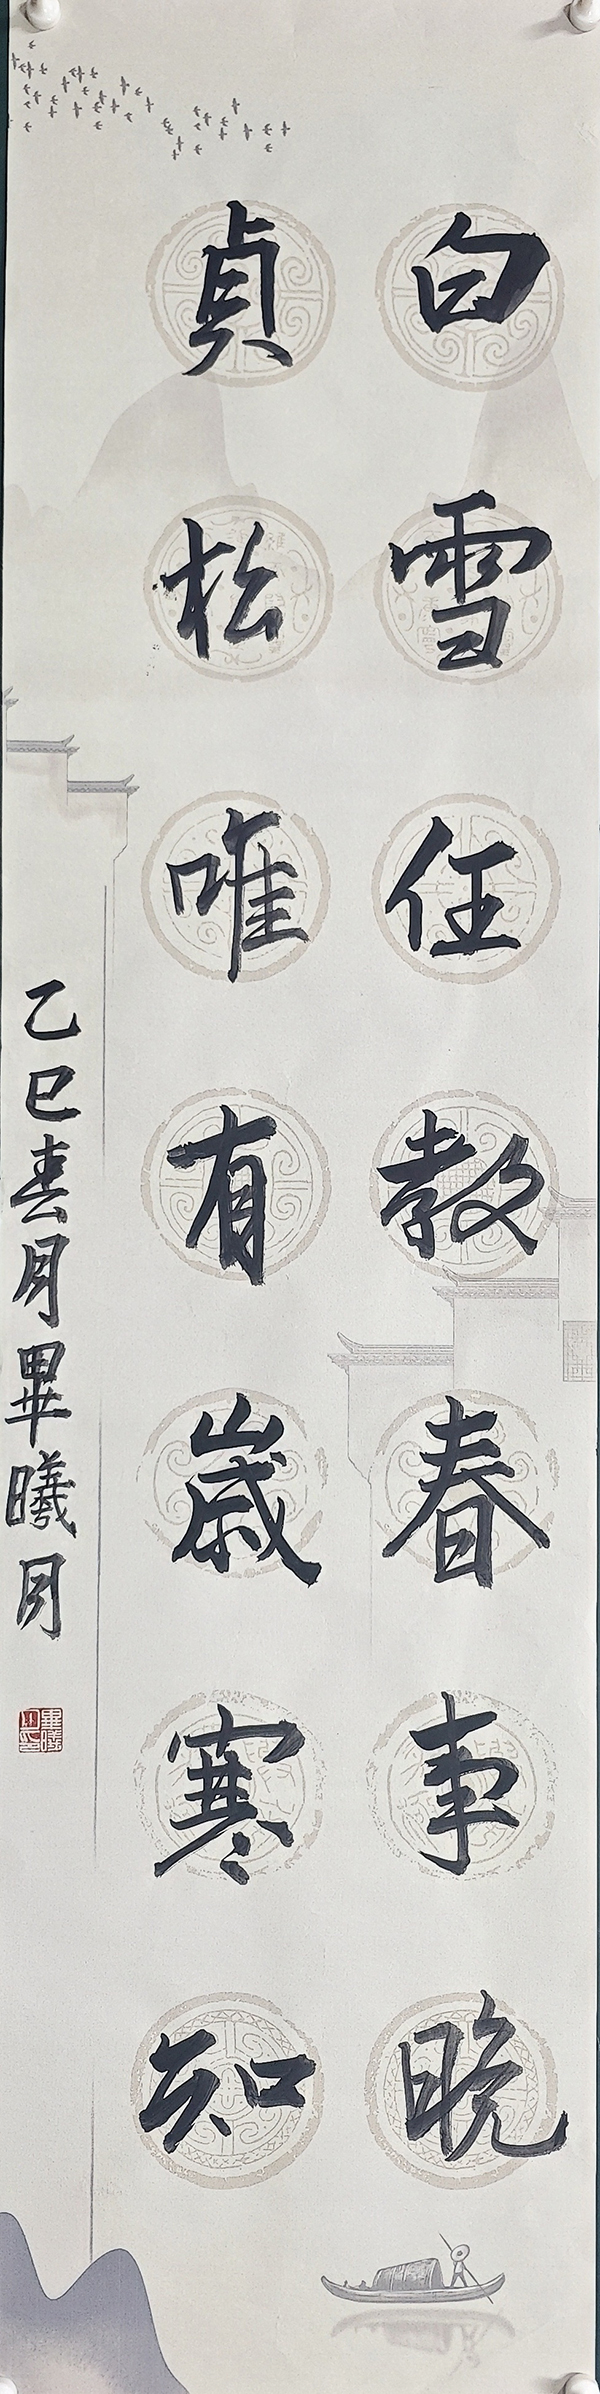 白雪任教春事晚
貞松唯有歲寒知
乙巳春月畢曦月